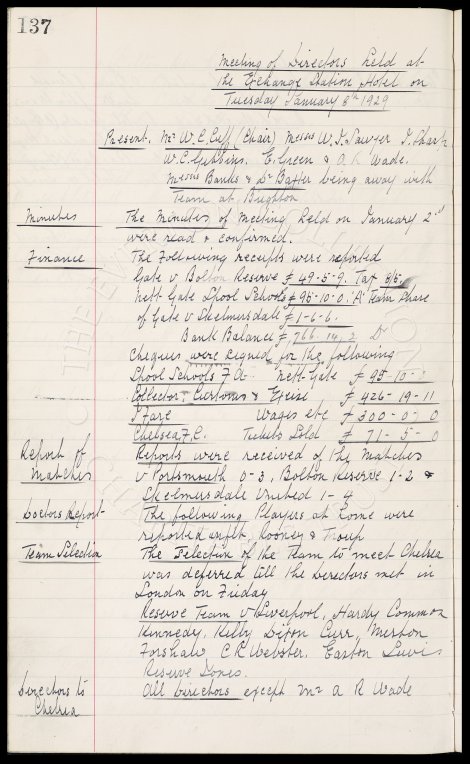 137
Meeting of Directors held at
the Exchange Station Hotel on
Tuesday January 8th 1929
Present. Mr W.C. Cuff (Chair) Messrs W.J. Sawyer J. Sharp
W.C. Gibbins. E. Green & A.R. Wade.
Messrs Banks & Dr Baxter being away with
Team at Brighton
Minutes
The Minutes of Meeting held on January 2nd
were read & confirmed.
Finance
The Following receipts were reported
Gate v Bolton Reserve £49-5-9. Tax
Nett Gate Lpool Schools £95-10-0. "A" Team Share
of Gate v Skelmersdale £1-6-6.
Bank Balance £766.14.2 Dr
Cheques were signed for the following
Lpool Schools F.A. Nett Gate £95-10-
Collector Customs & Excise £426-19-11
Wages etc £300-0-0
Chelsea F.C. Tickets Sold £71-5-0
Report of
Matches
Reports were received of the Matches
v Portsmouth 0-3, Bolton Reserve 1-2 &
Skelmersdale United 1-4
Doctors Report
The following Players at home were
reported unfit, Rooney & Troup
Team Selection
The Selection of the Team to meet Chelsea
was deferred till the Directors met in
London on Friday
Reserve Team v Liverpool, Hardy Common
Kennedy. Kelly Dixon Curr, Meston
Forshaw C.R. Webster. Easton Lewis
Reserve Jones.
Directors to
Chelsea
All Directors except Mr A R Wade